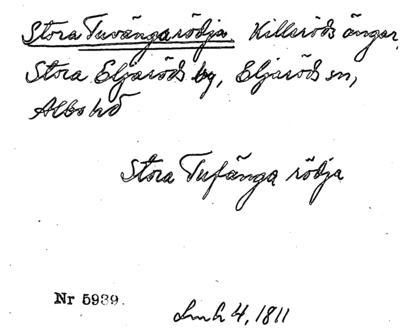 Stora Tuvängarödja. Killeröds ängar,
Stora Eljaröds by, Eljaröds sn,
Albo hd
Stora Tufänga rödja
Nr 5989.
Lmh 4, 1811